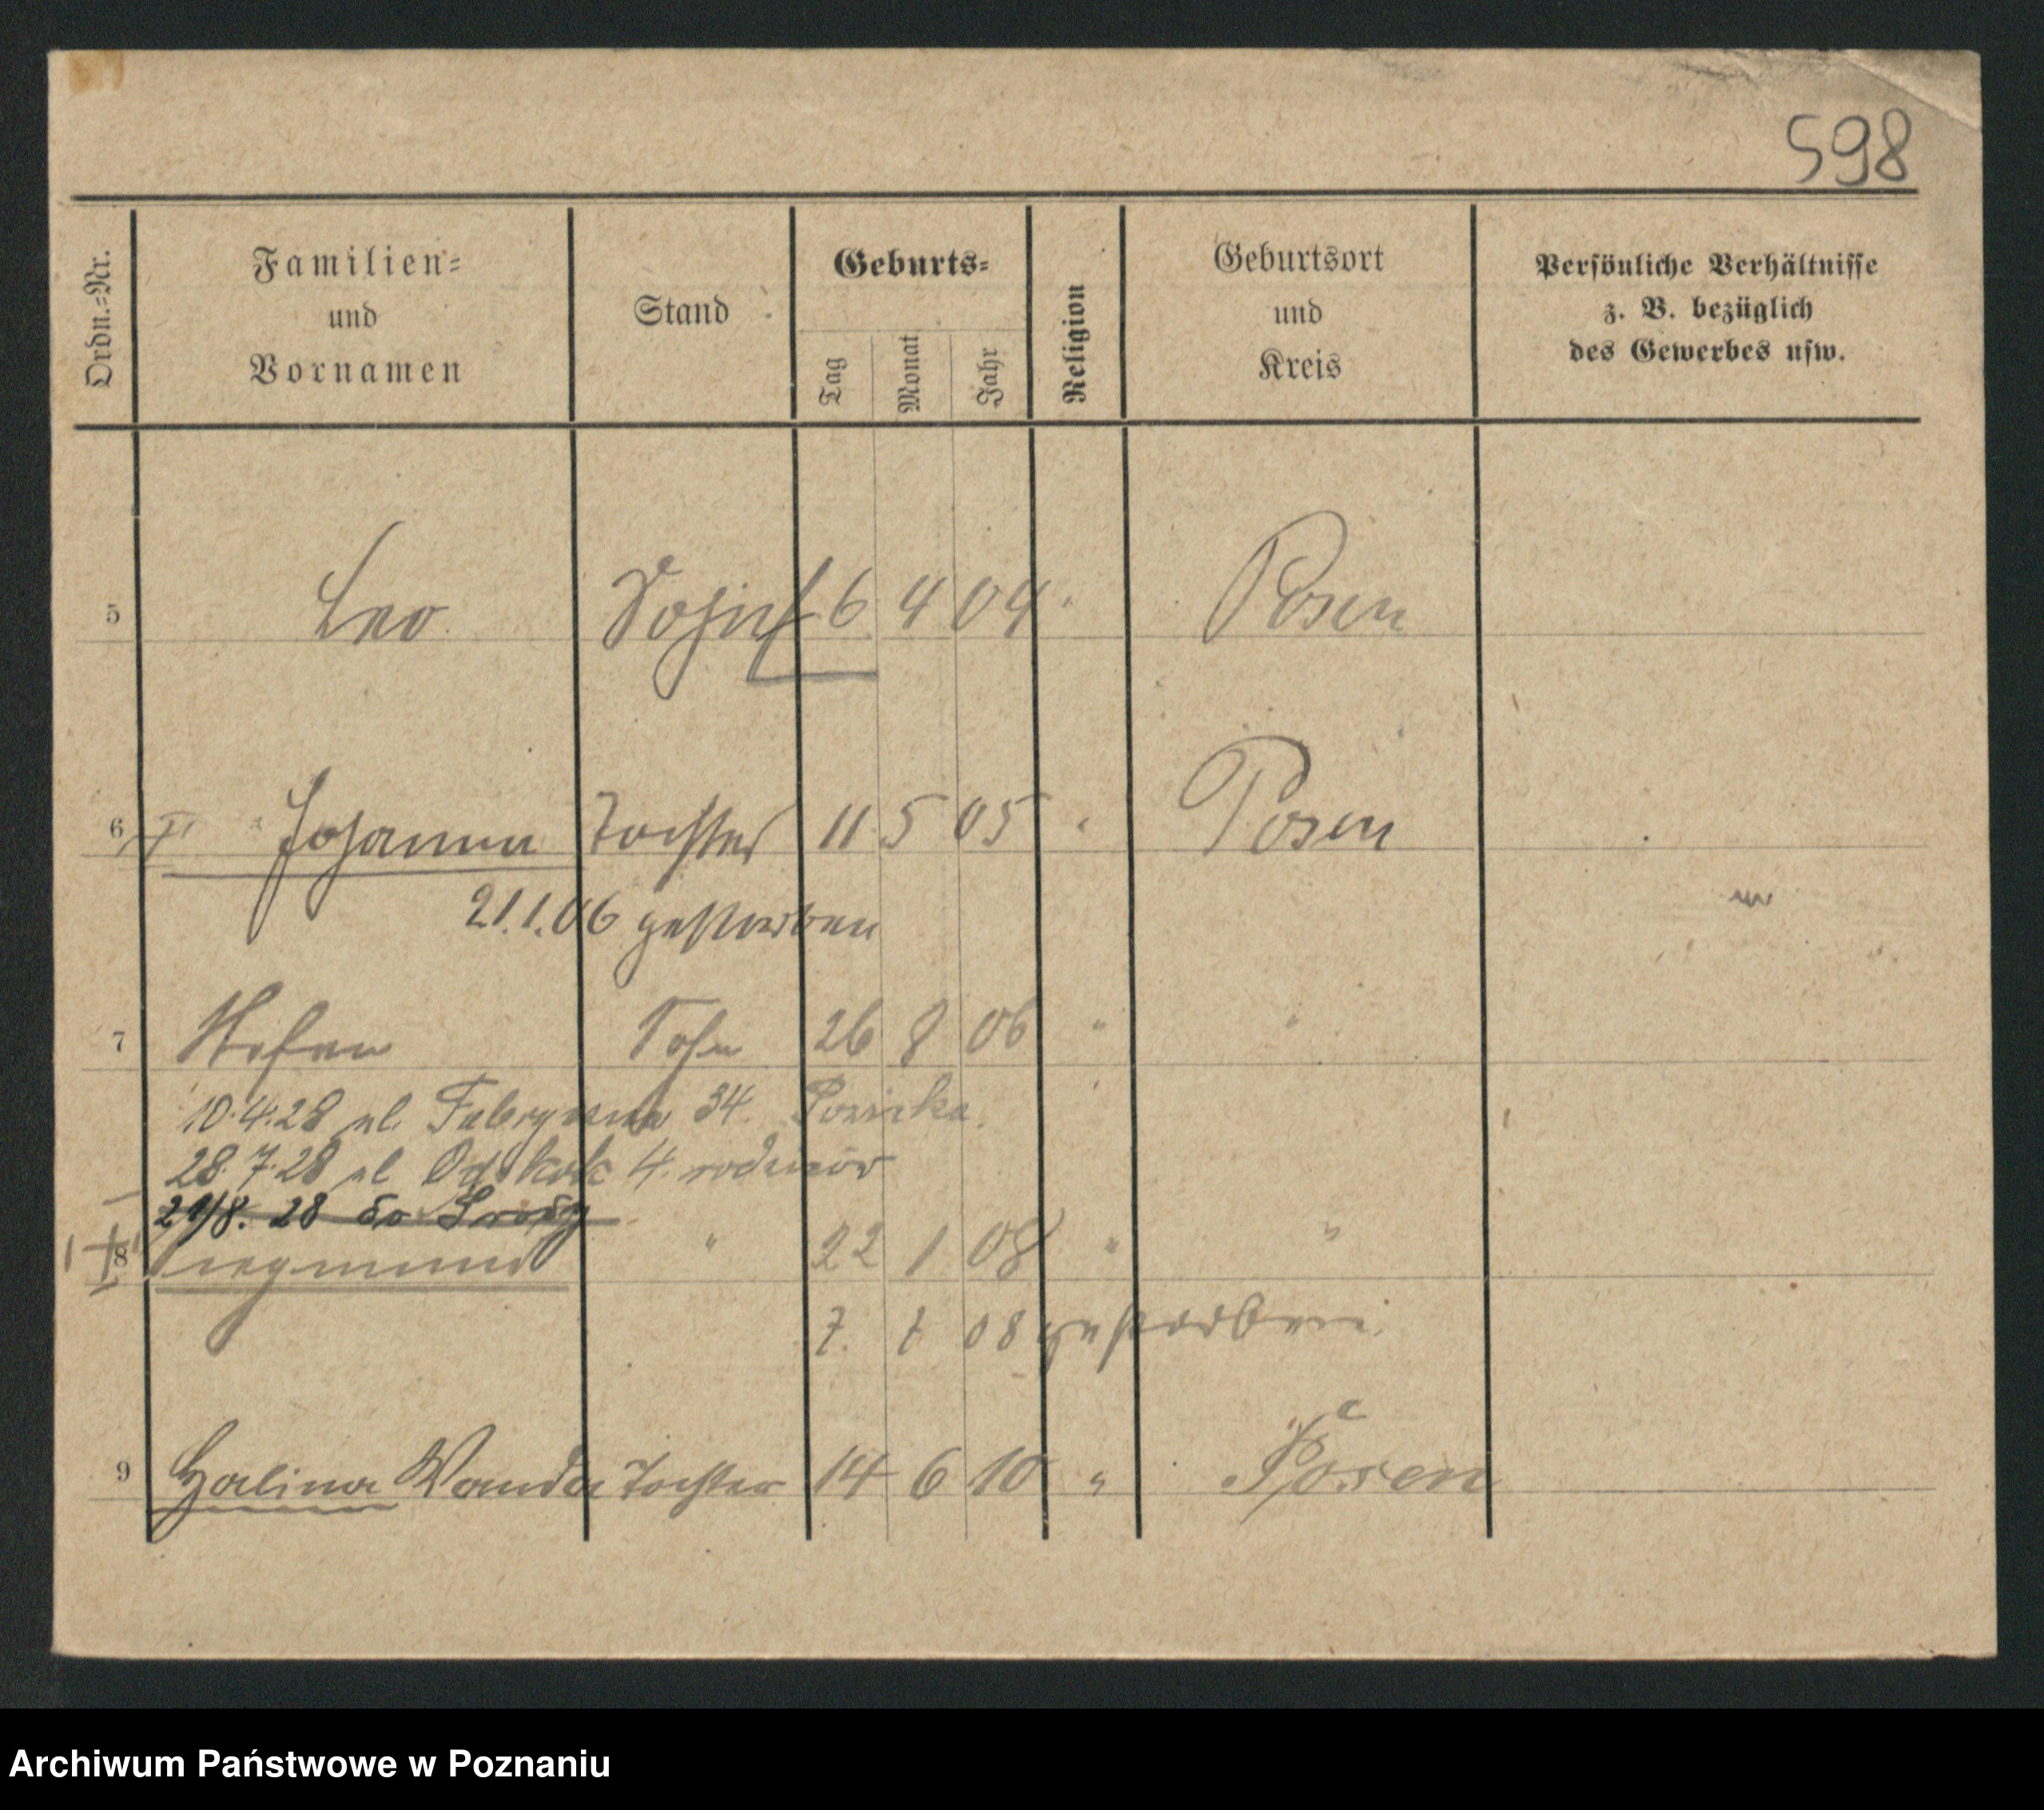 598
Ordn.=Nr.
Familien=
und
Vornamen
Stand
Geburts=
Tag
Monat
Jahr
Religion
Geburtsort
und
Kreis
Persönliche Verhältnisse
z. B. bezüglich
des Gewerbes usw.
5 Leo 6 4 04 Posen
6 Johanna Tochter 11 5 05 " Posen
21.1.06 gestorben
7 Stefan Sohn 26 8 06 " "
10.4.28 ul. Fabryczna 34
28.7.28 ul 4.
28 do Środy
8 Siegmund " 22 1 08 " "
7. 7 08 gestorben
9 Halina Wanda Tochter 14 6 10 " Posen
Archiwum Państwowe w Poznaniu